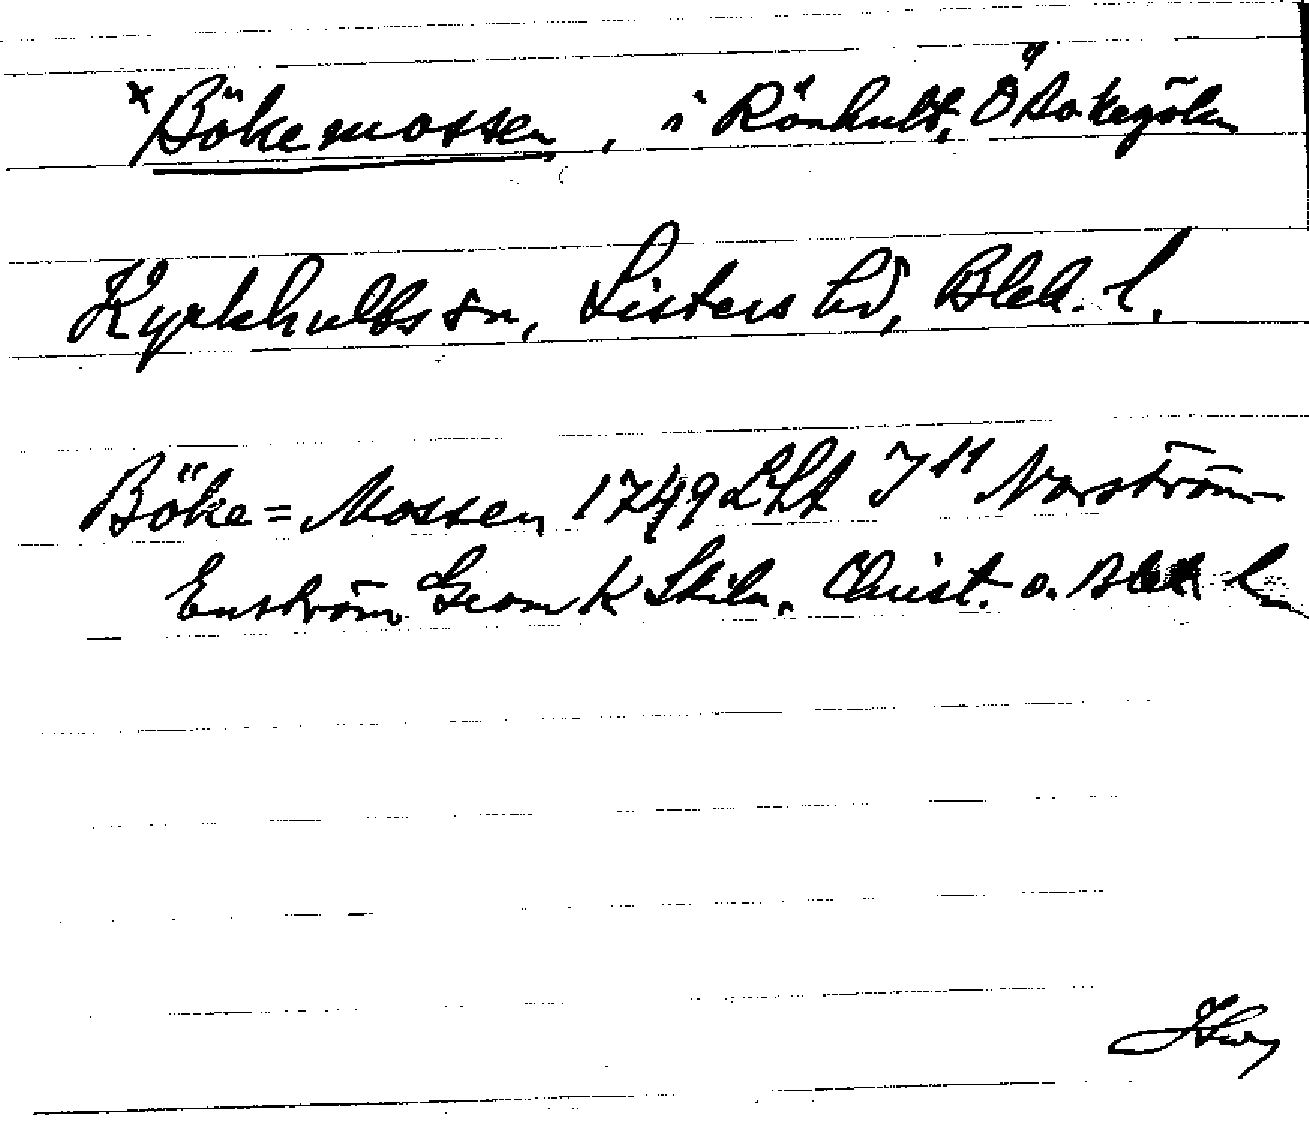 ×Bökemossen, i Rönhult, Ö Rokegölen
Kyrkhults sn, Listers hd, Blek. l.
Böke=Mossen 1749 LSA J11 Norström
Enström Geom k Skiln. Christ. o. Blek l